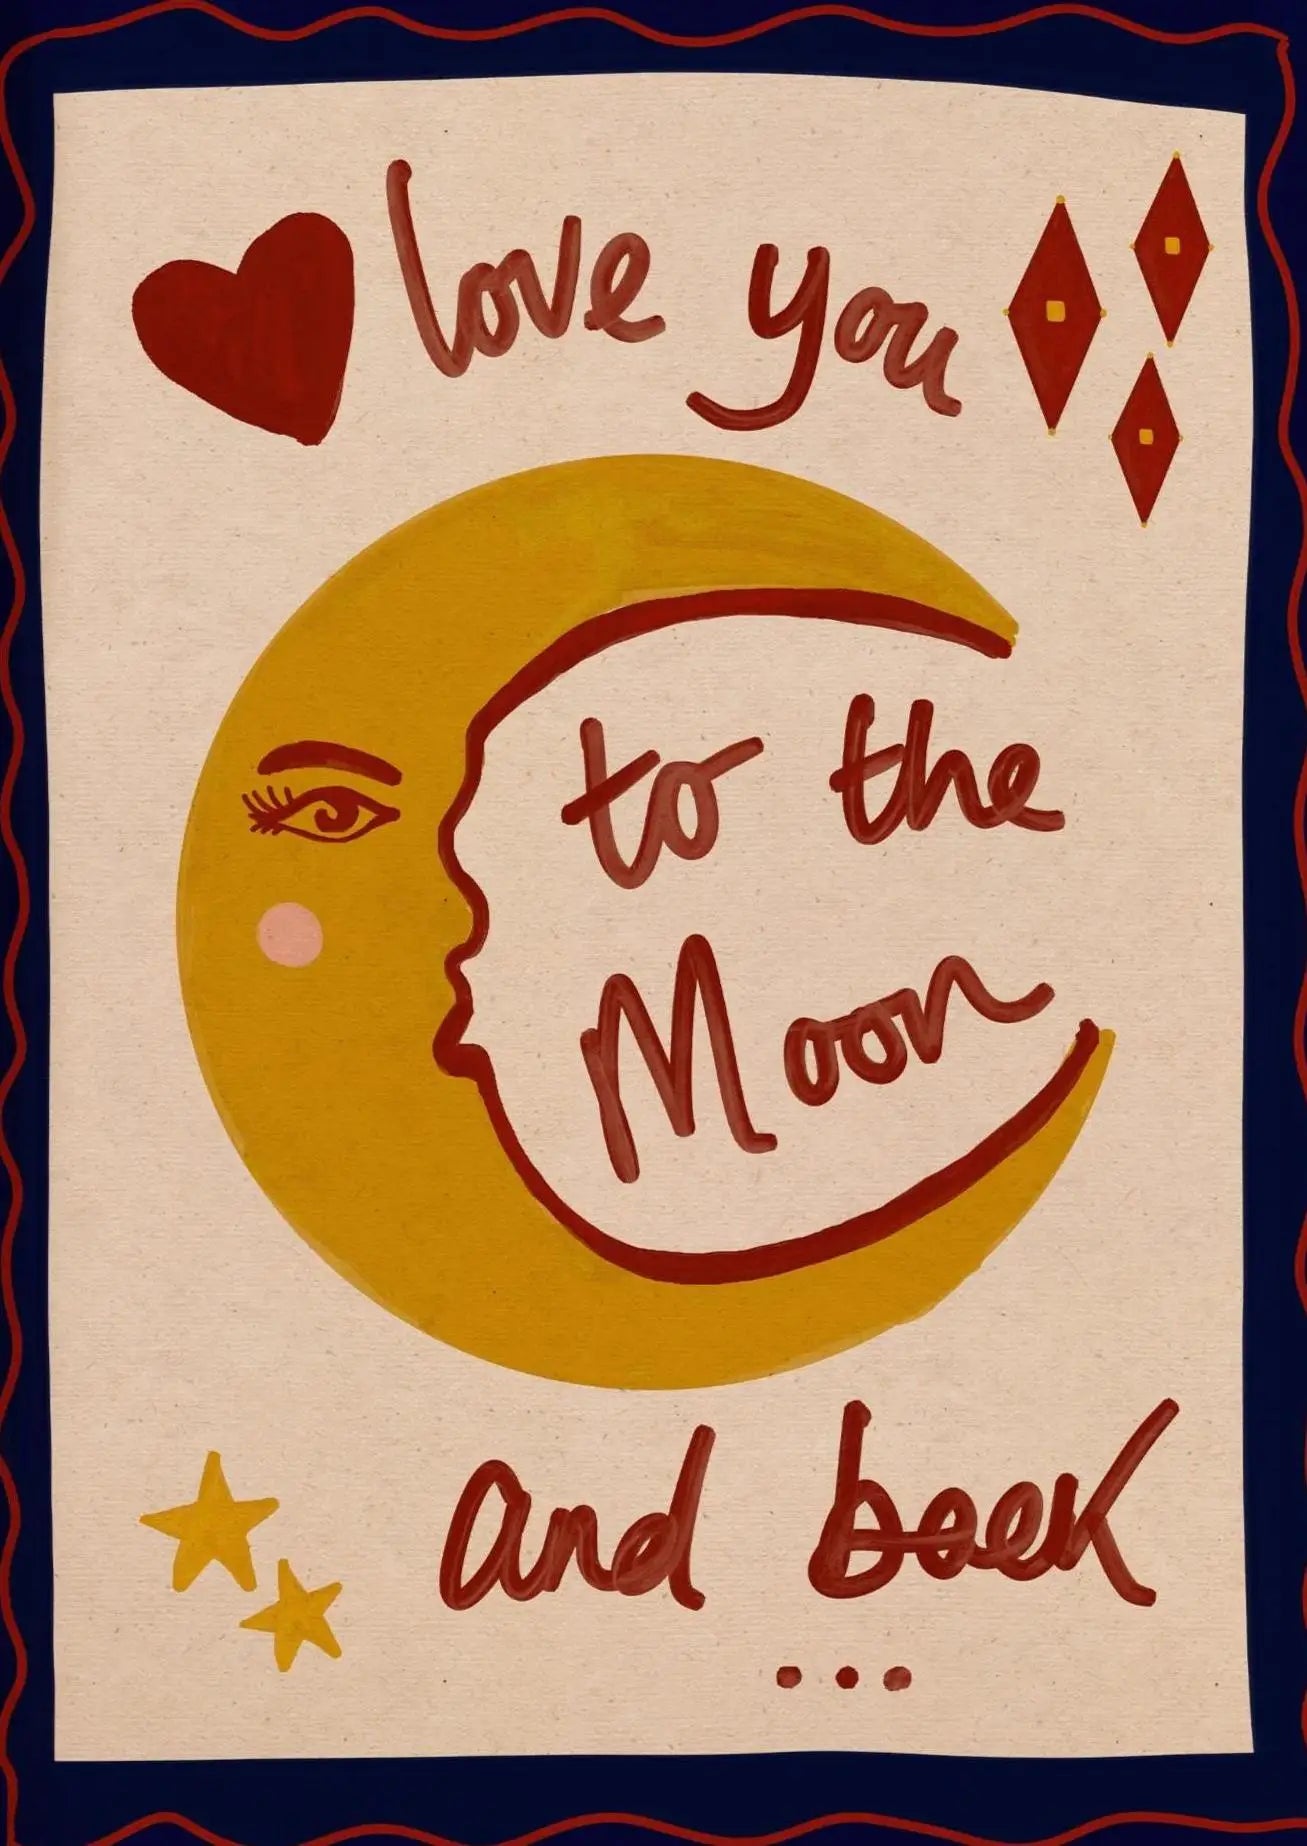 love you
to the
Moon
and back
...